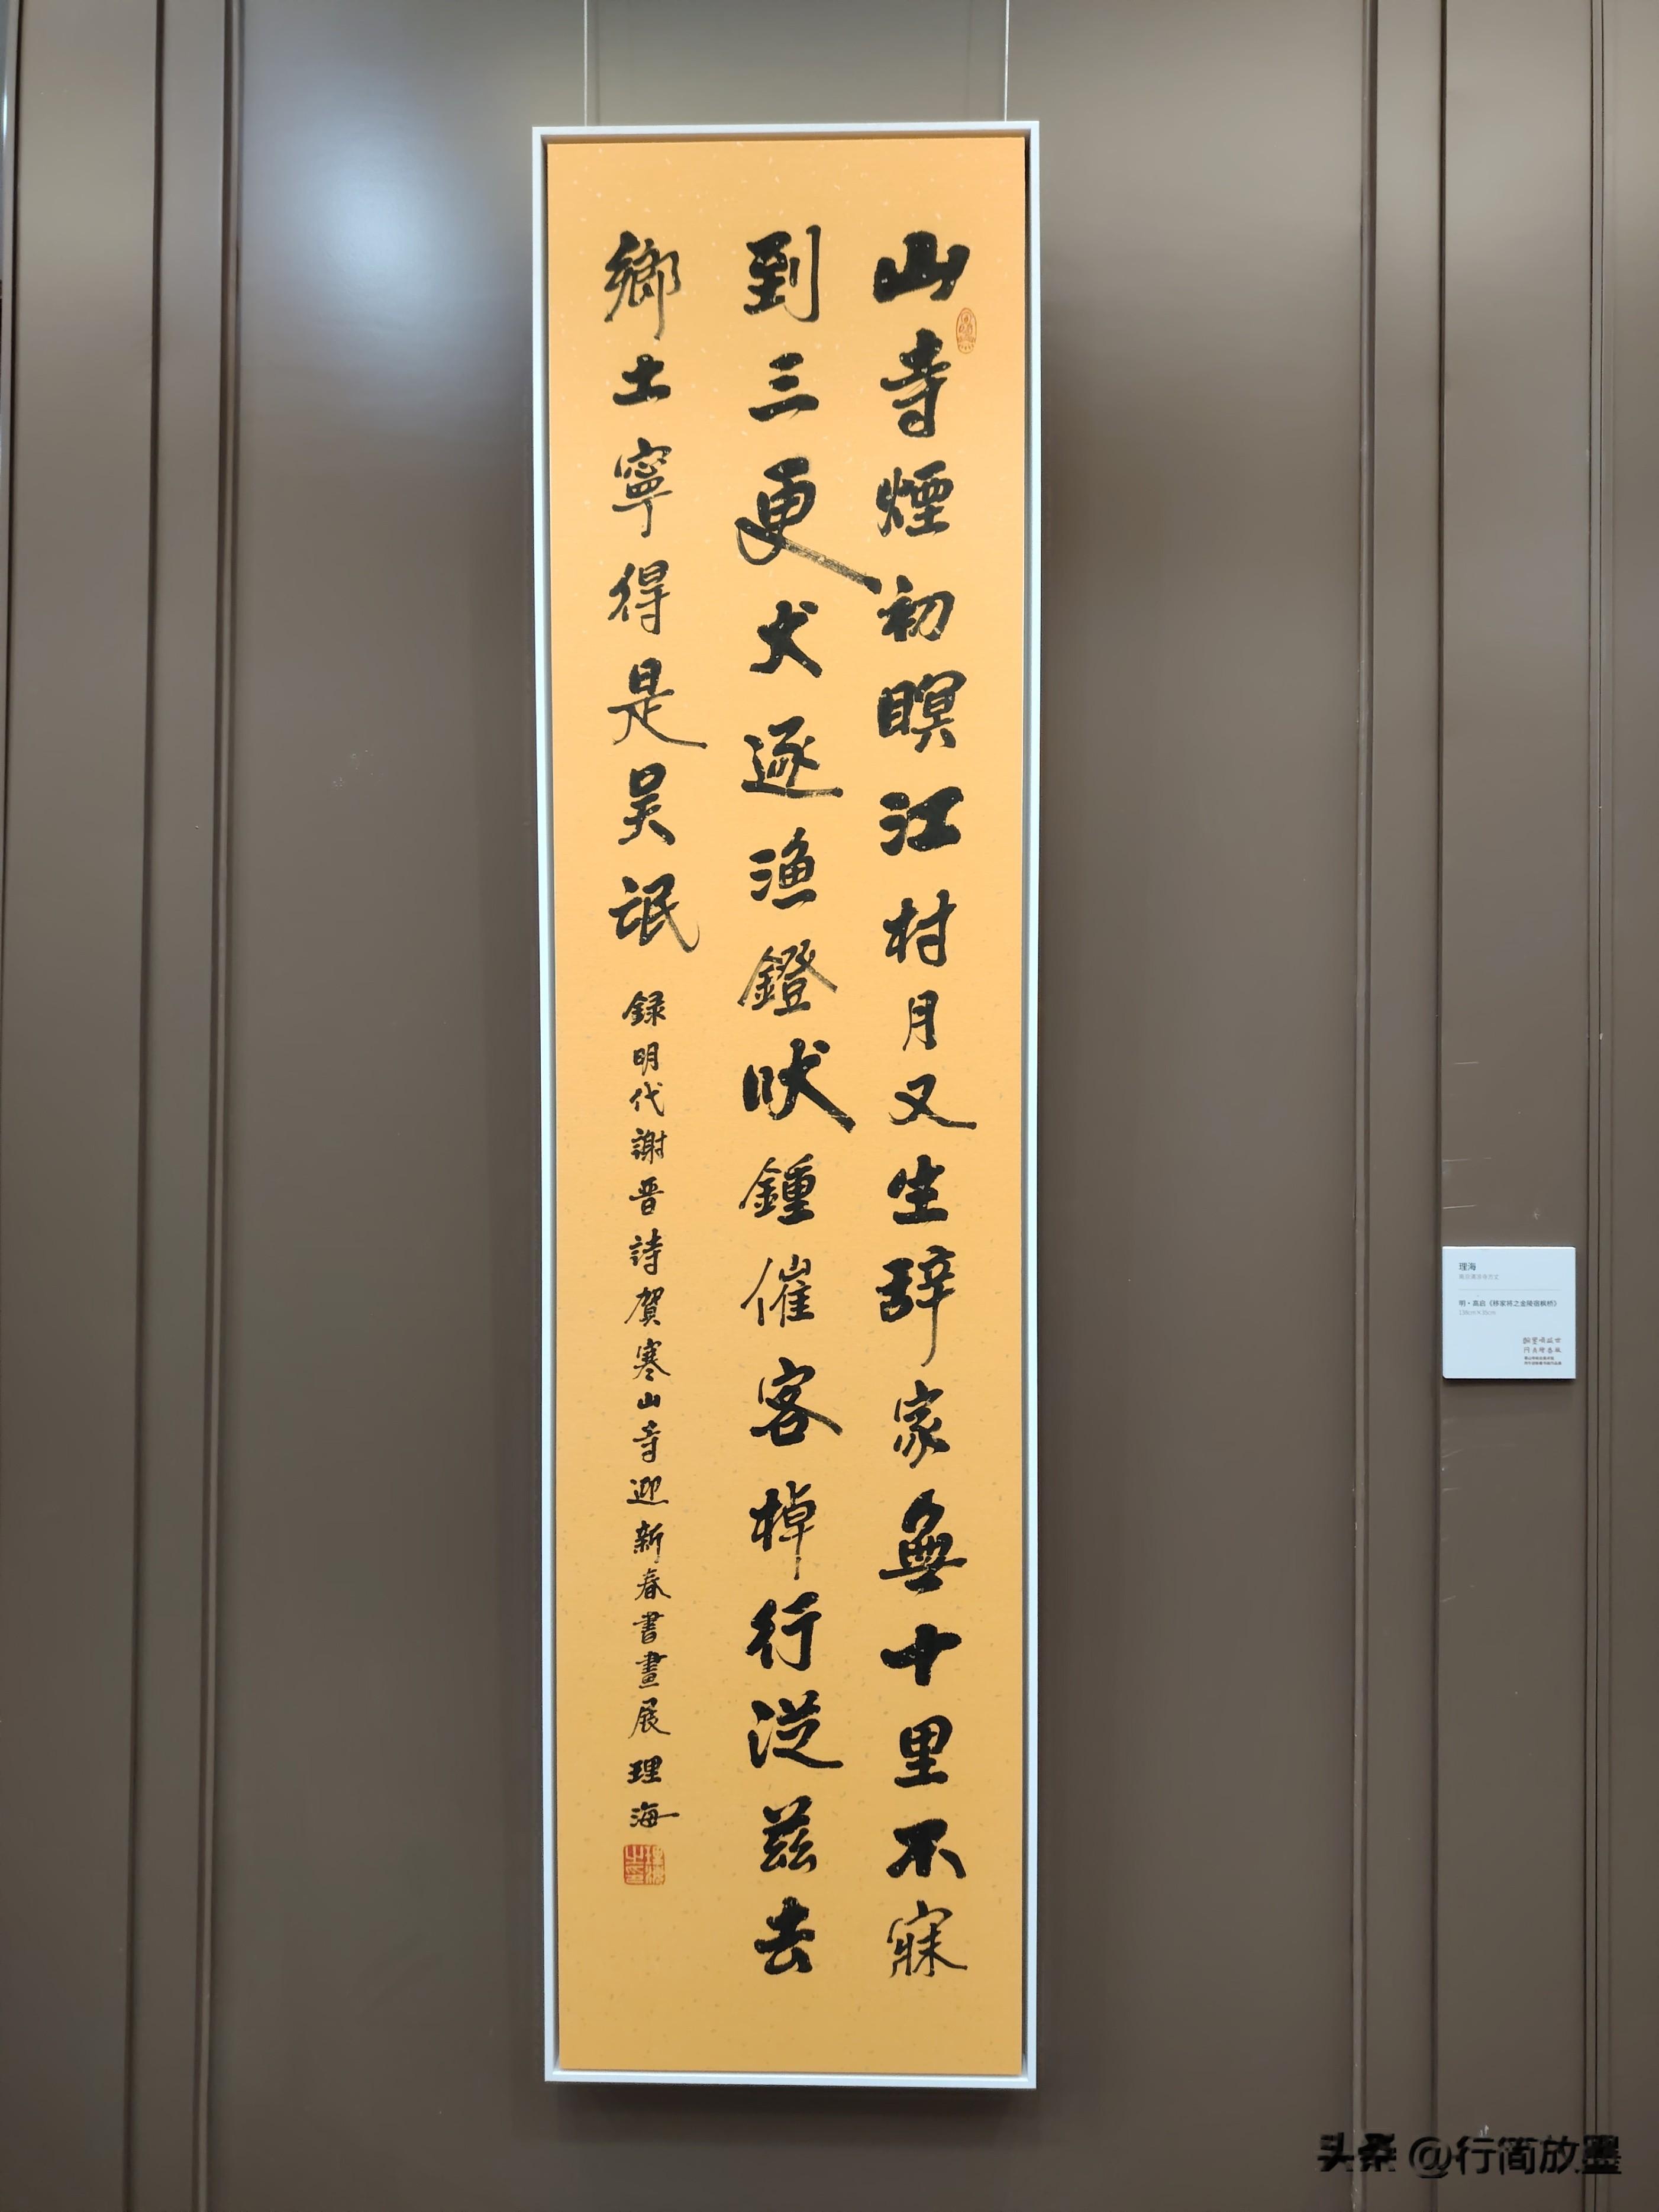 山寺煙初暝江村月又生辞家無十里不寐
到三更犬逐漁鐙吠鍾催客棹行從兹去
鄉土寧得是吴氓
録明代謝晋詩賀寒山寺迎新春書畫展理海
理海
明·高启《移家将之金陵宿枫桥》
138cm×35cm
头条 @行简放墨